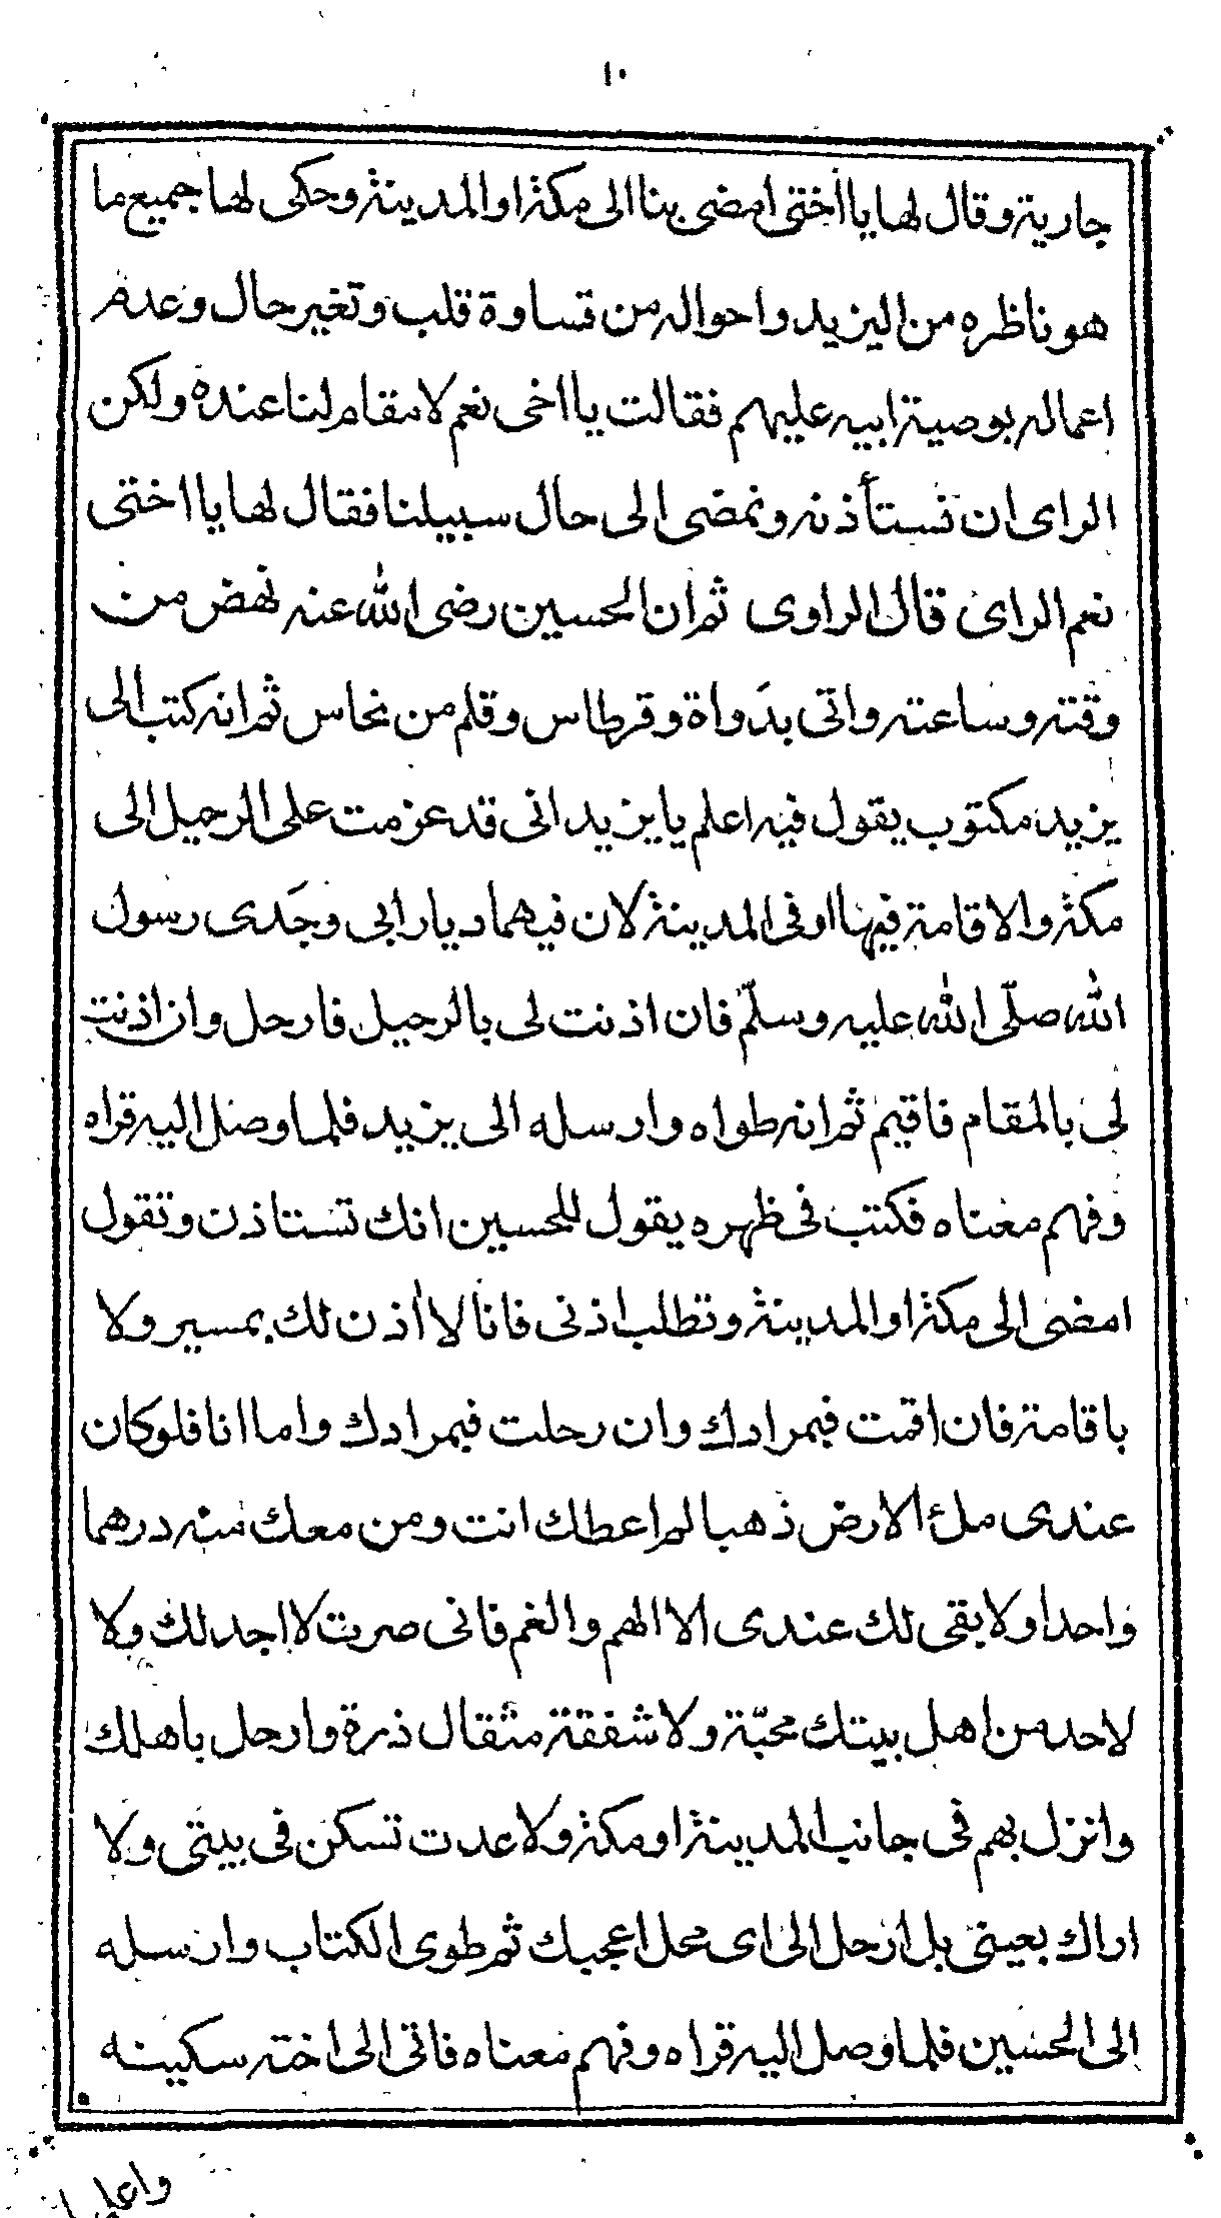 ١٠
جارية وقال لها يا أختى امضى بنا الى مكة او المدينة وحكى لها جميع ما
هو ناظره من اليزيد واحواله من قساوة قلب وتغير حال وعدم
اعماله بوصية ابيه عليهم فقالت يا اخى نعم لا مقام لنا عنده ولكن
الراى ان نستأذنه ونمضى الى حال سبيلنا فقال لها يا اختى
نعم الراى قال الراوى ثم ان الحسين رضى الله عنه نهض من
وقته وساعته واتى بدَواة وقرطاس وقلم من نحاس ثم انه كتب الى
يزيد مكتوب يقول فيه اعلم يا يزيد انى قد عزمت على الرحيل الى
مكة والاقامة فيها او فى المدينة لان فيهما ديار ابى وجَدى رسول
الله صلّى الله عليه وسلّم فان اذنت لى بالرحيل فارحل وان اذنت
لى بالمقام فاقيم ثم انه طواه وارسله الى يزيد فلما وصل اليه قراه
وفهم معناه فكتب فى ظهره يقول للحسين انك تستاذن وتقول
امضى الى مكة او المدينة وتطلب اذنى فانا لا أذن لك بمسير ولا
باقامة فان اقمت فبمرادك وان رحلت فبمرادك واما انا فلو كان
عندى ملئ الارض ذهبا لم اعطك انت ومن معك منه درهما
واحدا ولا بقى لك عندى الا الهم والغم فانى صرت لا اجد لك ولا
لاحد من اهل بيتك محبّة ولا شفقة مثقال ذرة وارحل باهلك
وانزل بهم فى جانب المدينة او مكة ولا عدت تسكن فى بيتى ولا
اراك بعينى بل ارحل الى اى محل اعجبك ثم طوى الكتاب وارسله
الى الحسين فلما وصل اليه قراه وفهم معناه فاتى الى اخته سكينه